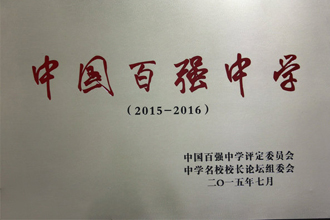 中国百强中学
(2015-2016)
中国百强中学评定委员会
中学名校校长论坛组委会
二〇一五年七月